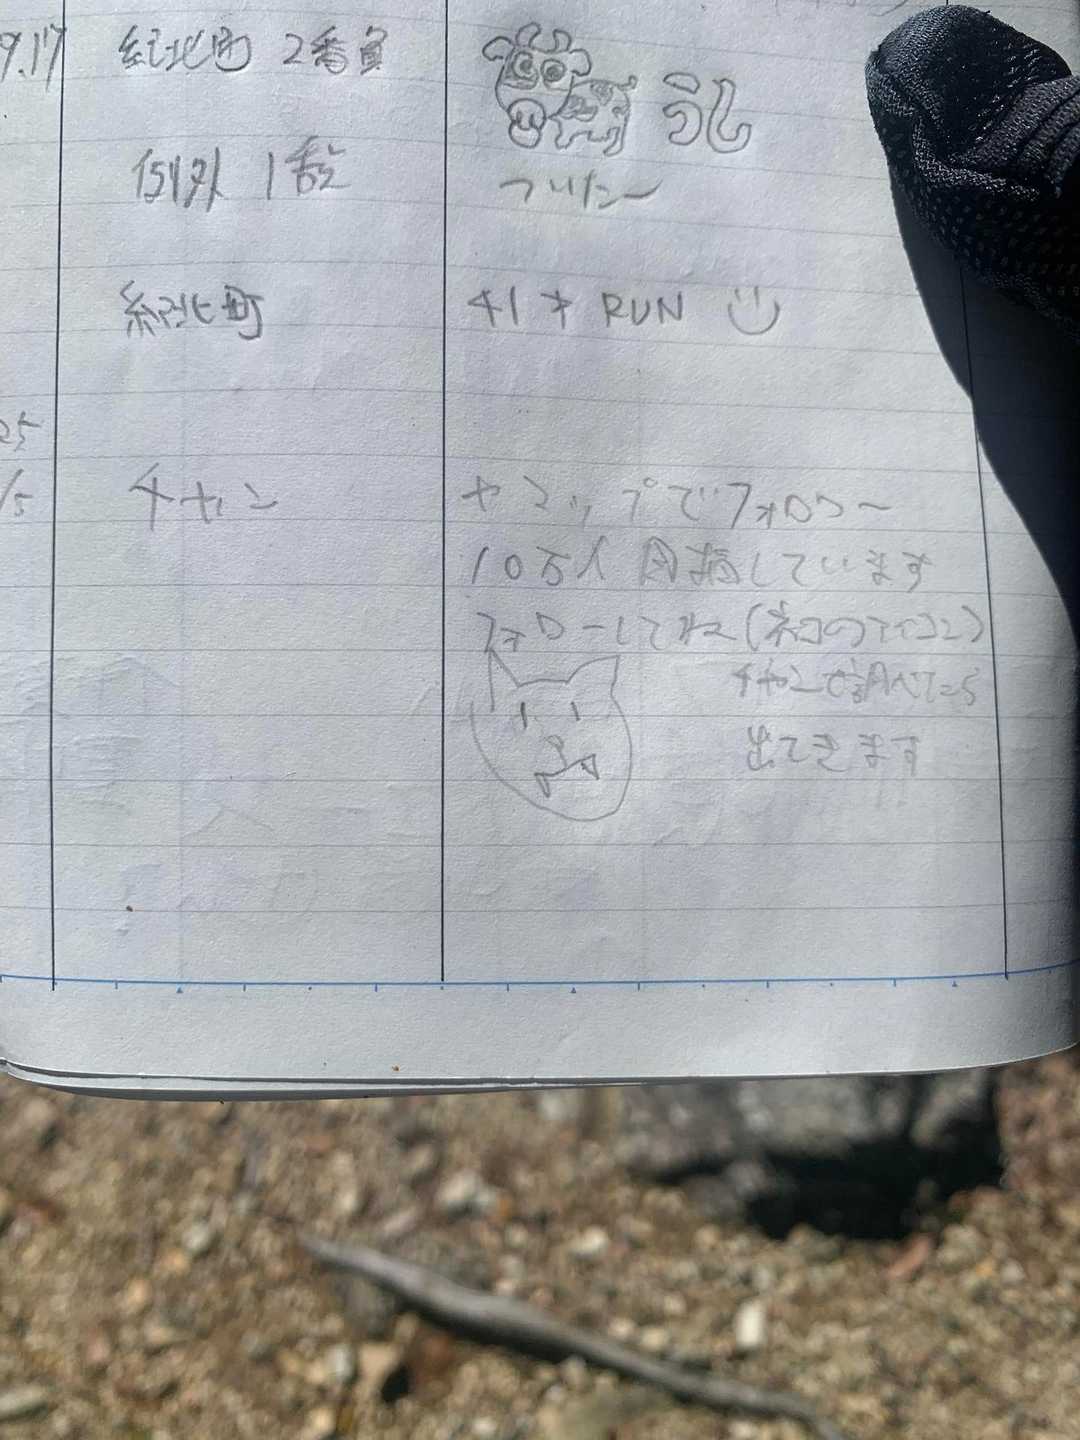 9.17 紀北町 2番員
例外 1番 ついたー
紀北町 41才 RUN
25
1/5 チャン ヤマップでフォロワー
10万人目指しています
フォローしてね(ネコのアイコン)
チャンで調べたら
出てきます